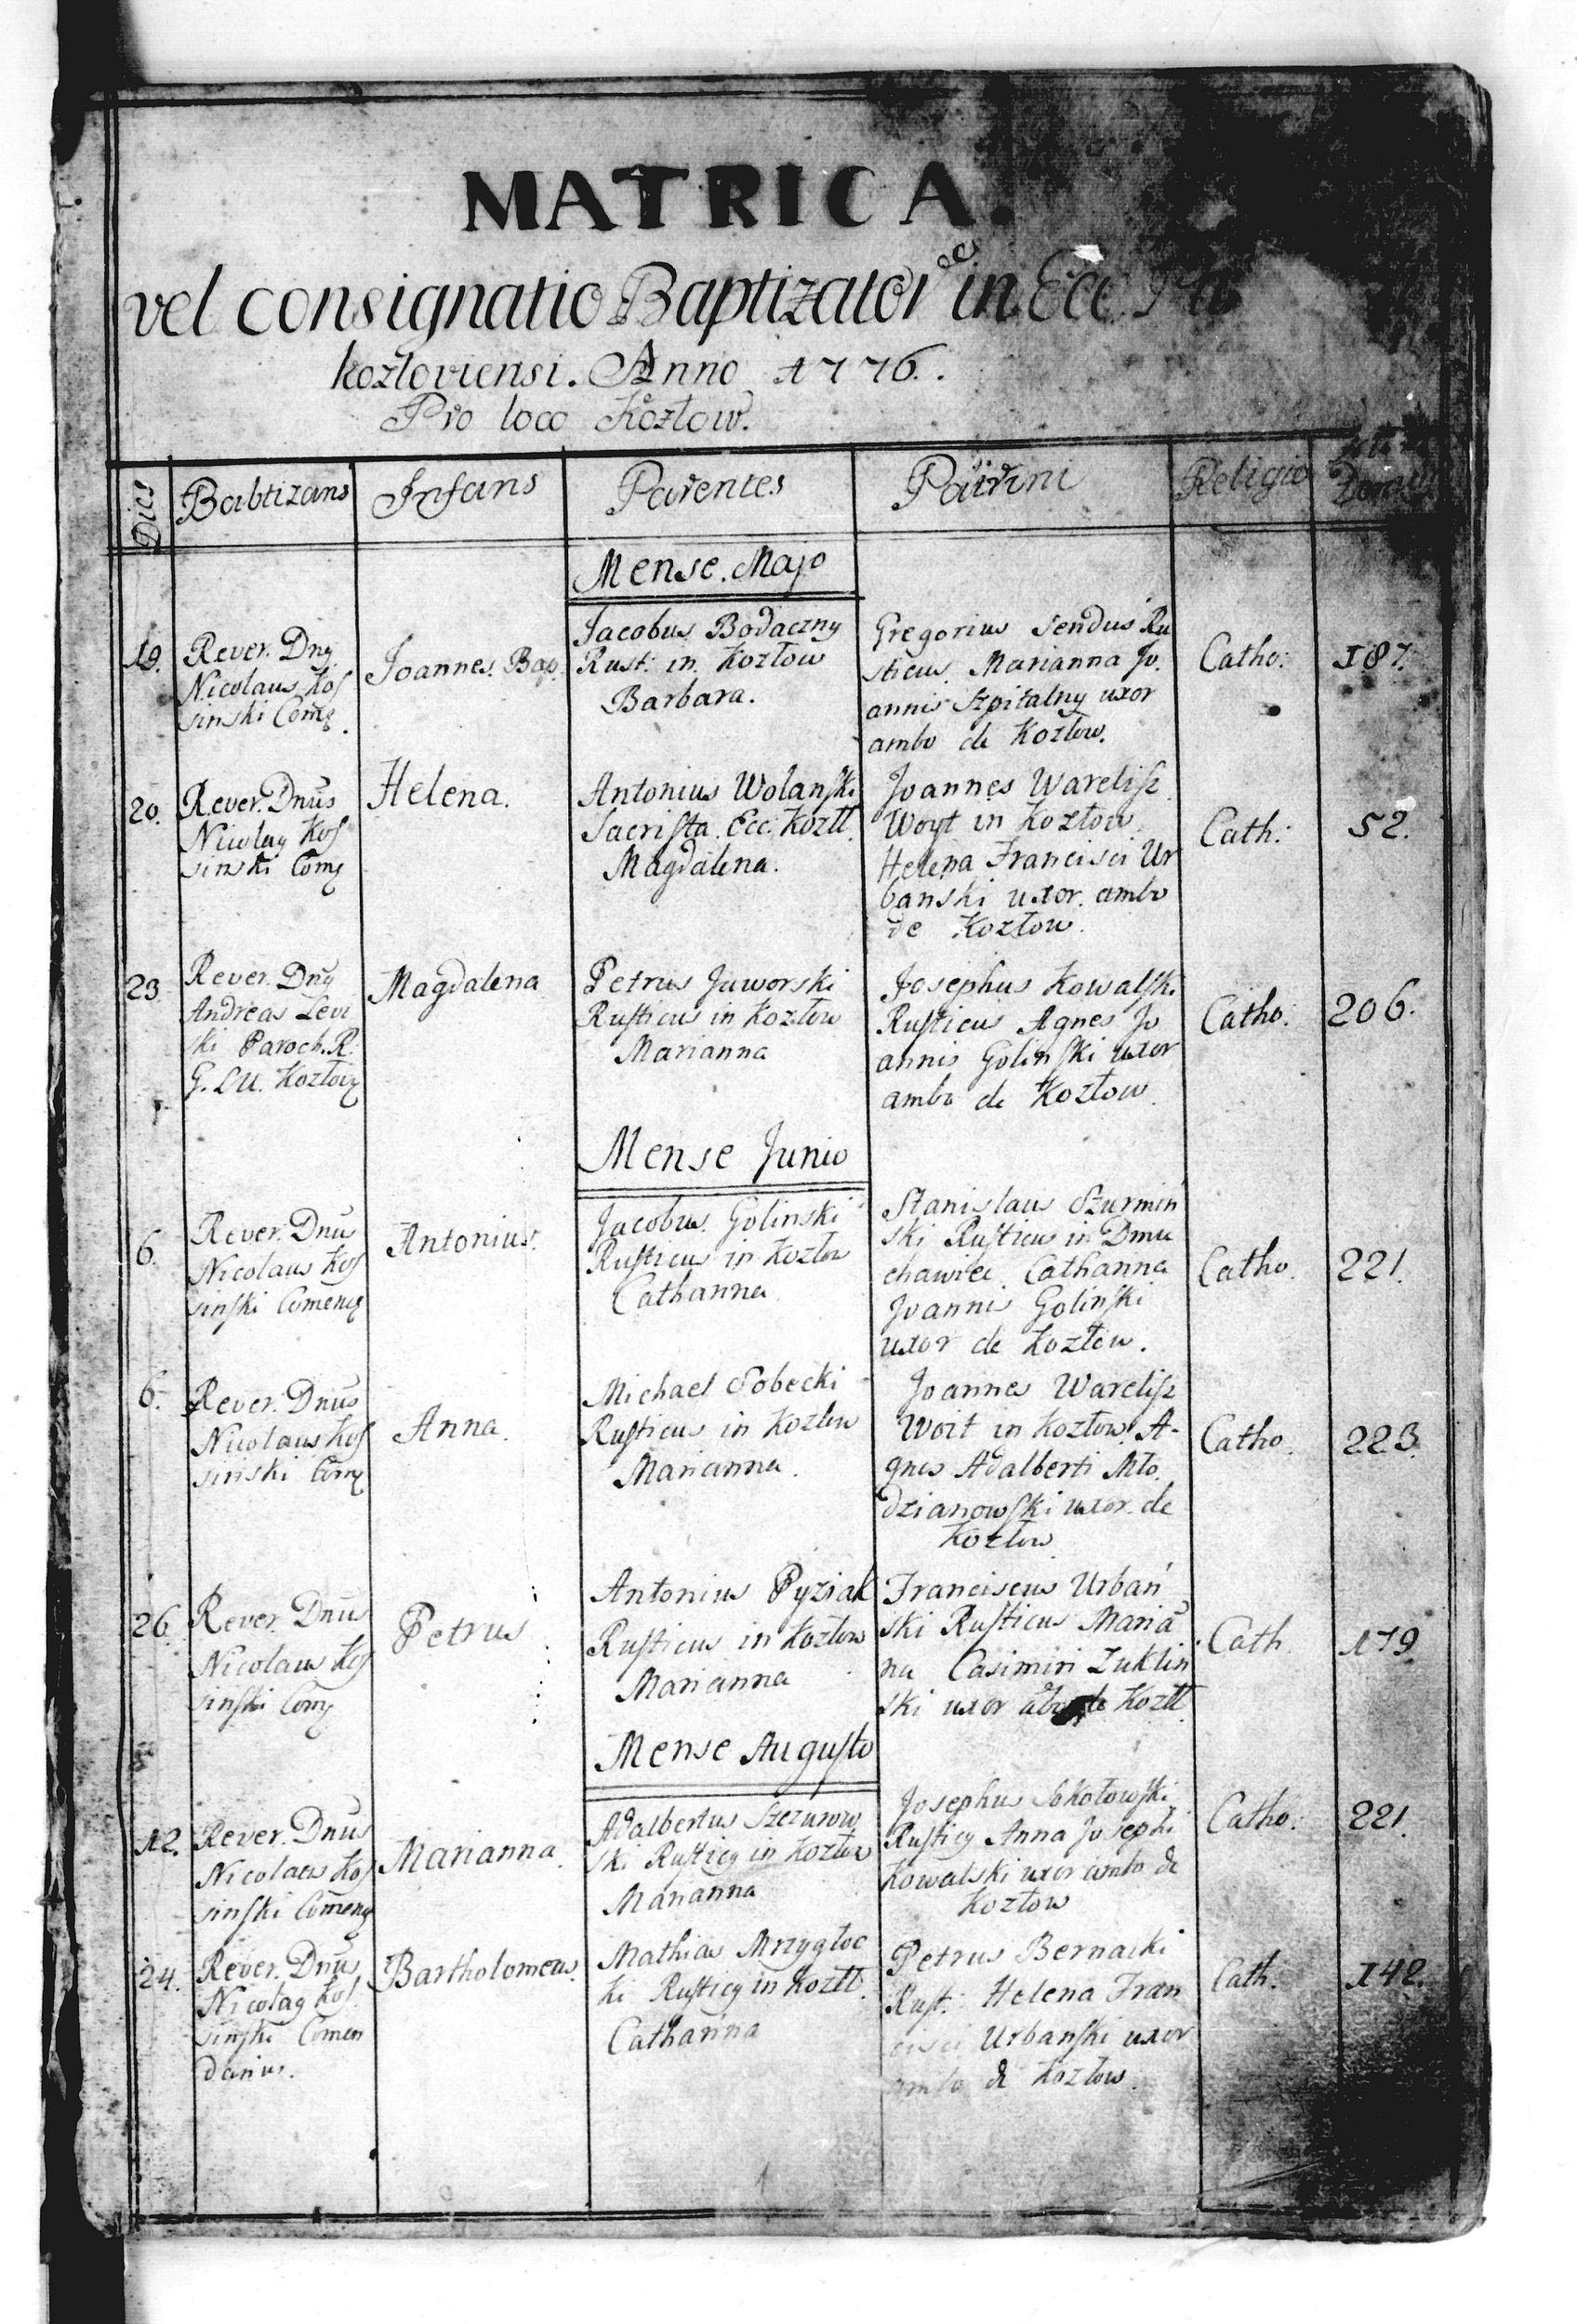 MATRICA.
vel consignatio Baptizator in Ecc
Kozłoviensi. Anno 1776.
Pro loco Kozłow.
Dies
Babtizans
Infans
Parentes
Patrini
Religio
Mense Majo
19.
Rever. Dnȝ
Nicolaus Kos
sinski Comȝ.
Joannes. Bap.
Jacobus Bodaczny
Rust: in Kozłow
Barbara.
Gregorius Senduś Ru
sticus. Marianna Jo.
annis Szpitalny uxor
ambo de Kozłow.
Catho:
187.
20.
Rever. Dnūs
Nicolaȝ Kos
sinski Comȝ
Helena.
Antonius Wolanski
Sacrista Ecc. Kozłł
Magdalena.
Joannes Warelisz
Woyt in Kozłow
Helena Francisci Ur
banski uxor. ambo
de Kozłow.
Cath:
52.
23
Rever. Dnȝ
Andreas Levi
ski Paroch. R.
Magdalena
Petrus Jaworski
Rusticus in Kozłow
Marianna
Josephus Kowalski
Rusticus Agnes Jo
annis Golinski uxor
ambo de Kozłow.
Catho:
206.
Mense Junio
6.
Rever. Dnūs
Nicolaus Kos
sinski Comenȝ
Antonius.
Jacobus Golinski
Rusticus in Kozłow
Catharina
Stanislaus Szurmin
ski Rusticus in Dmu
chawiec Catharina
Joannis Golinski
uxor de Kozłow.
Catho.
221.
6.
Rever. Dnūs
Nicolaus Kos
sinski Comȝ
Anna.
Michael Sobecki
Rusticus in Kozłow
Marianna.
Joannes Warelisz
Woit in Kozłow. A-
gnes Adalberti Mło
dzianowski uxor de
Kozłow
Catho.
223.
26.
Rever. Dnūs
Nicolaus Kos
sinski Comȝ
Petrus
Antonius Pyziak
Rusticus in Kozłow
Marianna
Franciscus Urbań
ski Rusticus Maria
na Casimiri Zuklin
ski uxor Kozłł
Cath.
179.
Mense Augusto
12.
Rever. Dnūs
Nicolaus Kos
sinski Comenȝ
Marianna.
Adalbertus Szczurow
ski Rusticȝ in Kozłow
Marianna
Josephus Sokołowski
Rusticȝ Anna Josephi
Kowalski uxor ambo de
Kozłow
Catho:
221.
24.
Rever. Dnūs
Nicolaȝ Kos
sinski Comen
darius.
Bartholomeus.
Mathias Mrzygłoc
ki Rusticȝ in Kozłł.
Catharina
Petrus Bernacki
Rust. Helena Fran
cisci Urbanski uxor
ambo de Kozłow.
Cath.
142.